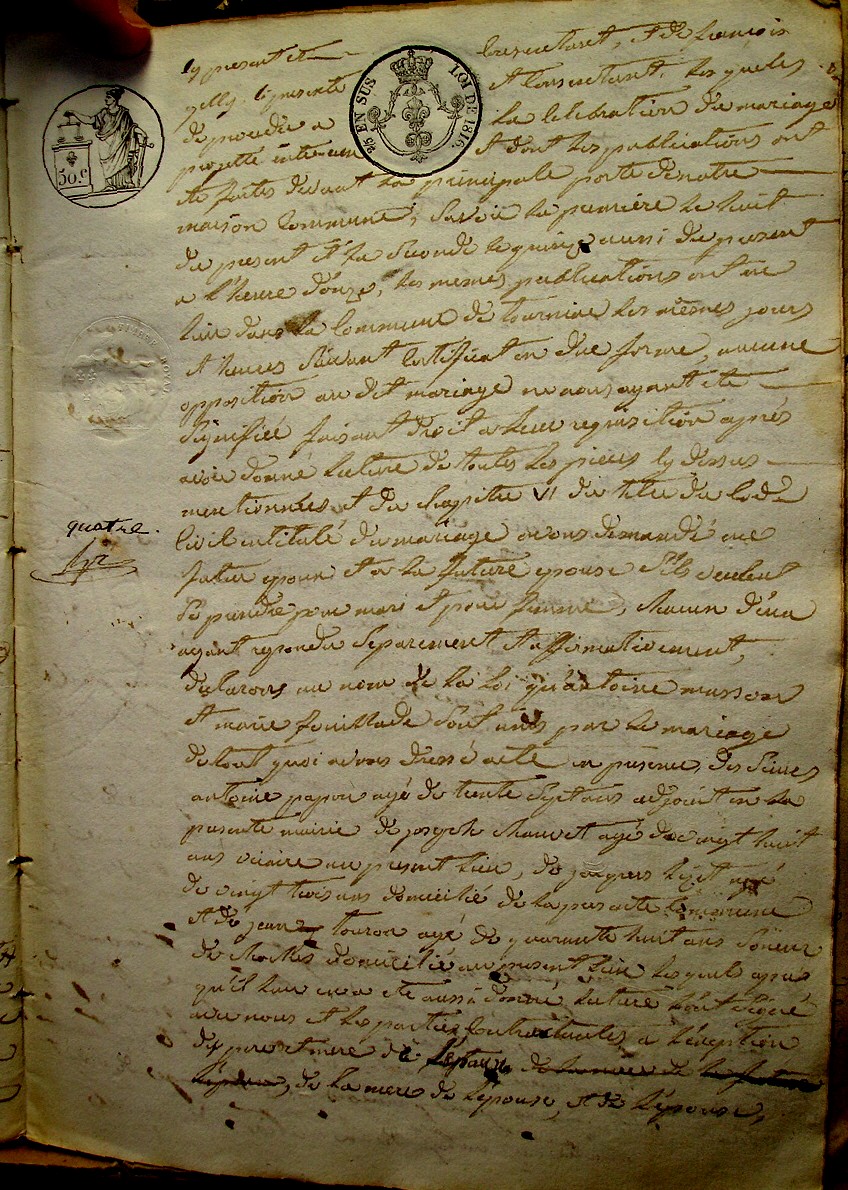 25 EN SUS LOI DE 1816.
50.c
quatre.
cy présent et consentant, et de françois
gelly, cy présente et consentant. lesquels
de procéder a la célébration du mariage
projetté entre eux et dont les publications ont
été faites devant la principale porte de notre
maison commune, savoir la première le huit
du présent et la seconde le quinze aussi du présent
a l'heure d'onze, les memes publications ont eu
lieu dans la commune de tourniac les mêmes jours
et heures suivant certificat en due forme, aucune
opposition au dit mariage ne nous ayant été
signifiée faisant droit a leur requisition après
avoir donné lecture de toutes les pièces cy dessus
mentionnées et du chapitre VI du titre du Code
Civil intitulé du mariage avons demandé au
futur epoux et a la future epouse s'ils veulent
se prendre pour mari et pour femme, chacun d'eux
ayant repondu séparement et affirmativement,
declarons au nom de la loi qu'antoine masson
et marie fouillade sont unis par le mariage
de tout quoi avons dressé acte en présence des sieurs
antoine papon agé de trente sept ans adjoint en la
présente mairie de joseph chauvet agé de vingt huit
ans vicaire au present lieu, de jacques lizet agé
de vingt trois ans domicilié de la présente commune
et de jean touron agé de quarante huit ans sonneur
de cloches domicilié au present lieu lesquels après
qu'il leur en a été aussi donné lecture l'ont signé
avec nous et les parties contractantes a l'exception
des pere et mere de l'epoux
de la mere de l'épouse, et de l'épouse,